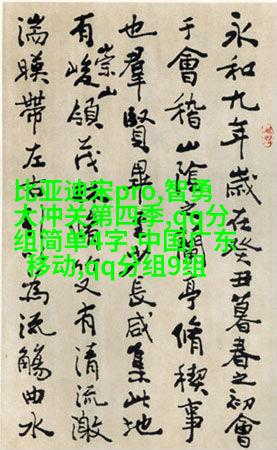 比亚迪宋pro,智勇
大冲关第四季,qq分
组简单4字,中国广东
移动,qq分组9组
永和九年歲在癸丑暮春之初會
于會稽山陰蘭亭脩稧事
也羣賢畢長咸集此地
有崇山峻領茂脩又有清流激
湍暎帶左右為流觴曲水